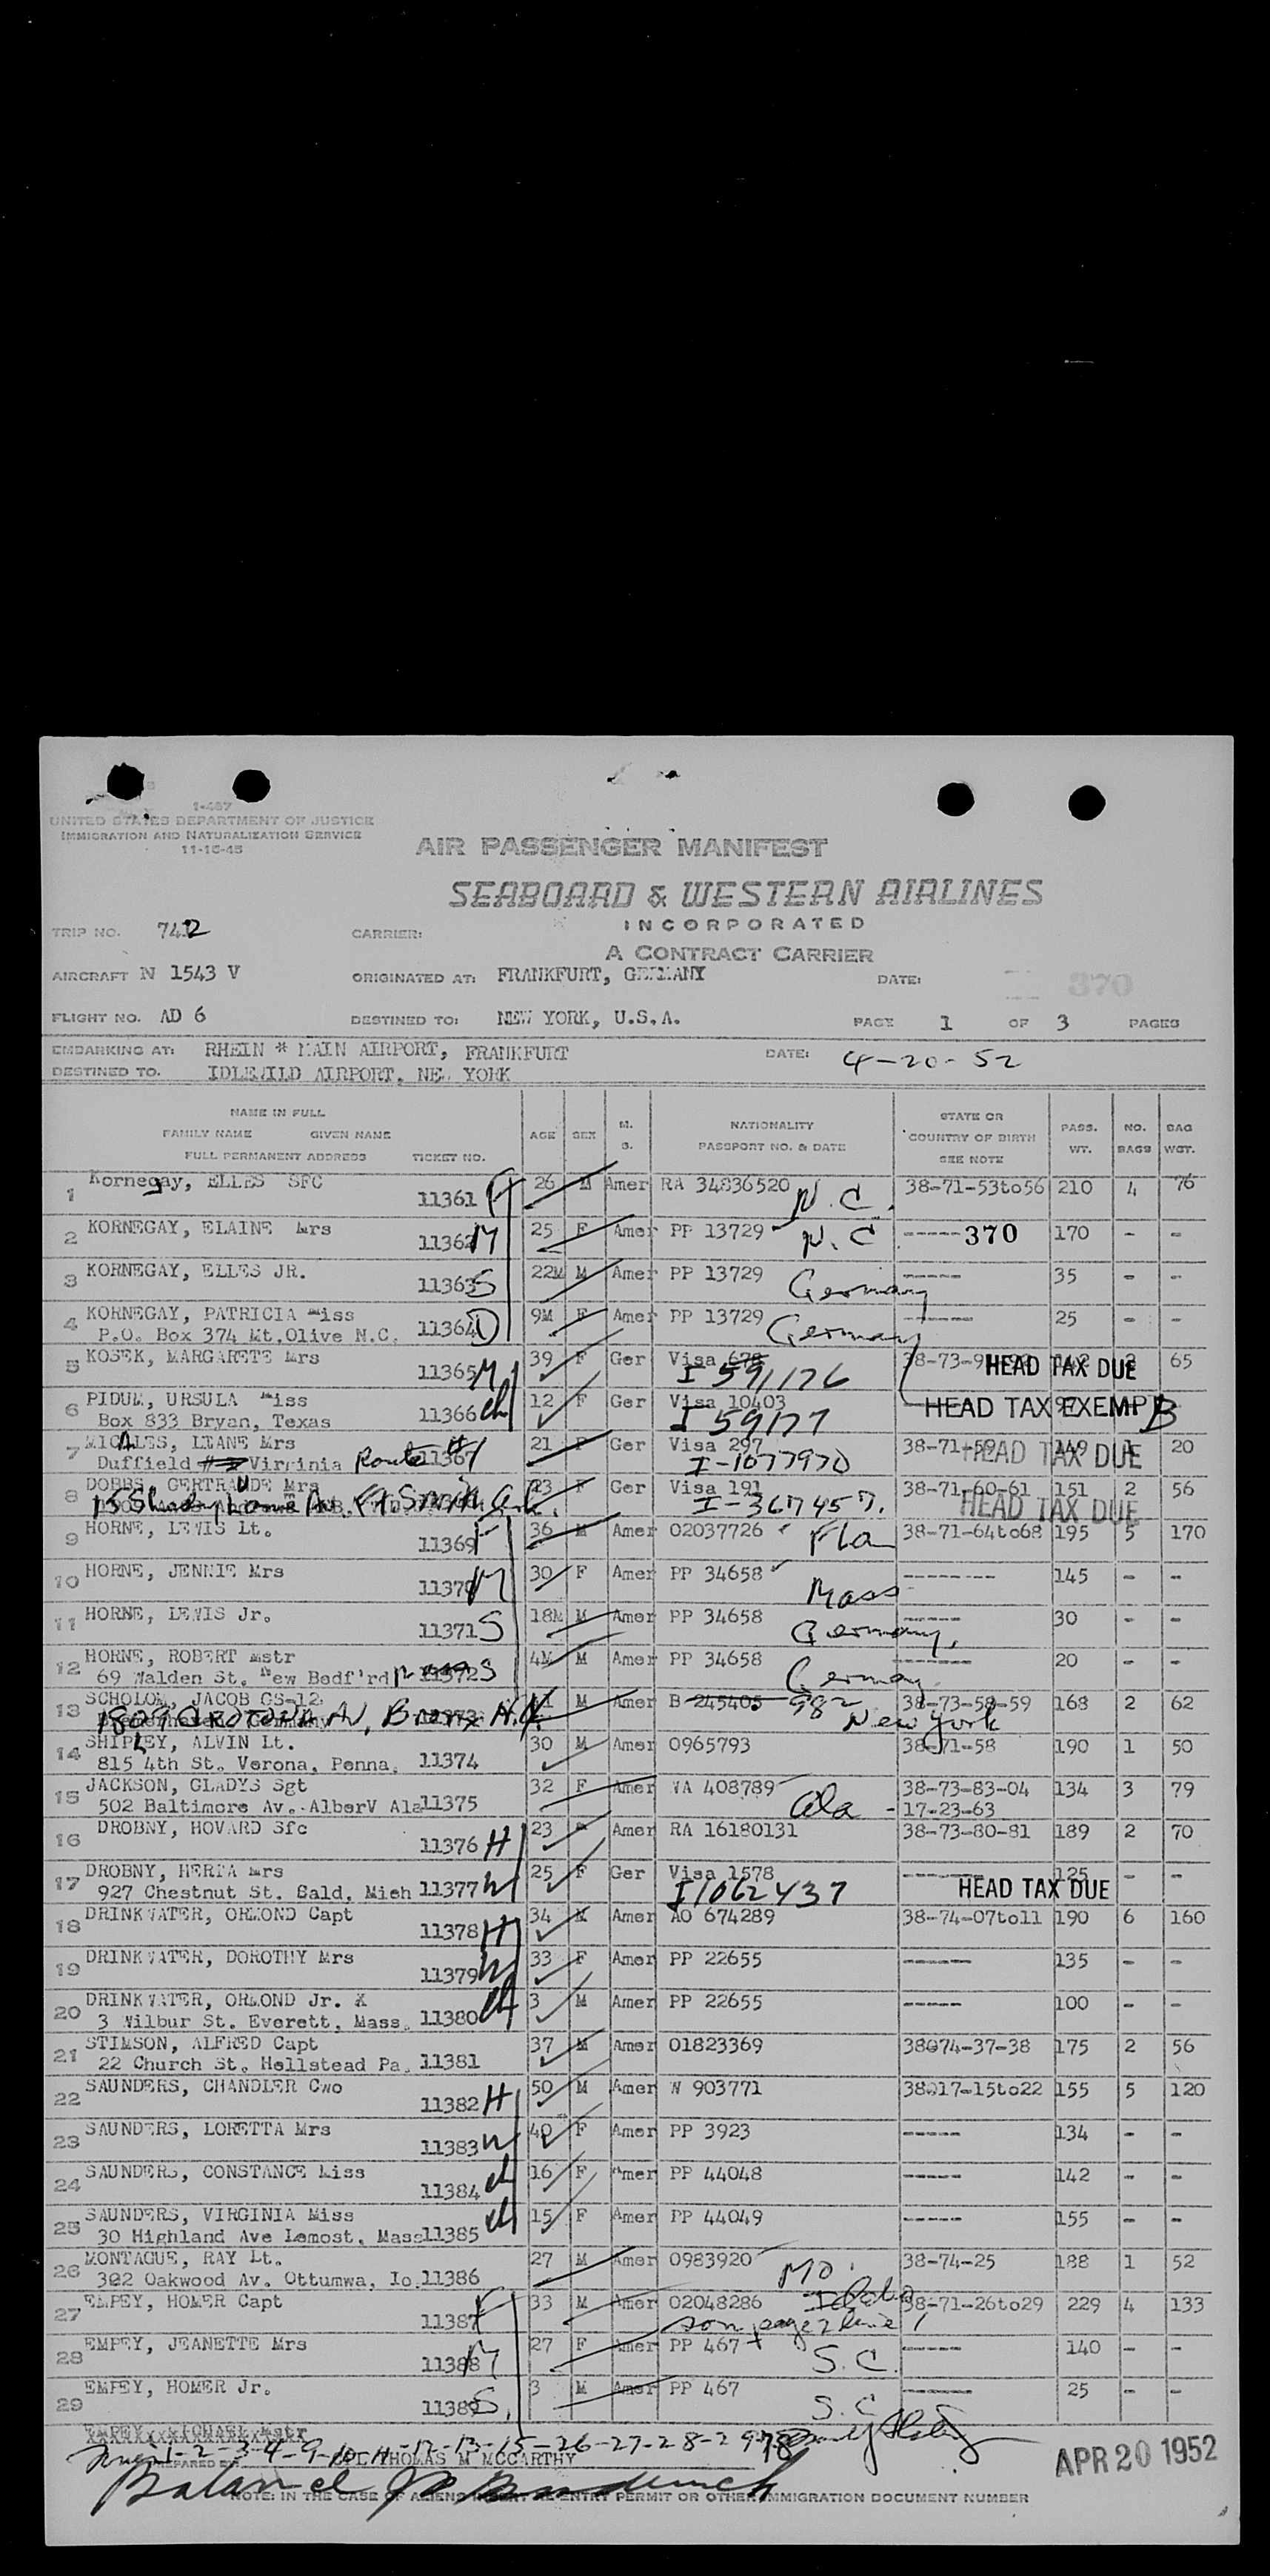 1-487
UNITED STATES DEPARTMENT OF JUSTICE
IMMIGRATION AND NATURALIZATION SERVICE
11-16-45
AIR PASSENGER MANIFEST
SEABOARD & WESTERN AIRLINES
INCORPORATED
A CONTRACT CARRIER
TRIP NO. 742 CARRIER:
AIRCRAFT N 1543 V ORIGINATED AT: FRANKFURT, GERMANY DATE: 370
FLIGHT NO. AD 6 DESTINED TO: NEW YORK, U.S.A. PAGE 1 OF 3 PAGES
EMBARKING AT: RHEIN * MAIN AIRPORT, FRANKFURT DATE: 4-20-52
DESTINED TO. IDLEWILD AIRPORT, NEW YORK
NAME IN FULL
FAMILY NAME GIVEN NAME
FULL PERMANENT ADDRESS TICKET NO.
AGE SEX M. S. NATIONALITY PASSPORT NO. & DATE STATE OR COUNTRY OF BIRTH SEE NOTE PASS. WT. NO. BAGS BAG WGT.
1 Kornegay, ELLES SFC 11361 F 26 M Amer RA 34836520 N.C. 38-71-53to56 210 4 76
2 KORNEGAY, ELAINE Mrs 11362 M 25 F Amer PP 13729 N.C -----370 170 - -
3 KORNEGAY, ELLES JR. 11363 S 22M M Amer PP 13729 Germany ----- 35 - -
4 KORNEGAY, PATRICIA Miss 9M F Amer PP 13729 Germany ------ 25 - -
P.O. Box 374 Mt.Olive N.C. 11364 D
5 KOSEK, MARGARETE Mrs 11365 M 39 F Ger Visa 678 I 591176 HEAD TAX DUE 65
6 PIDUM, URSULA Miss 12 F Ger Visa 10403 I 59177 HEAD TAX EXEMPT B
Box 833 Bryan, Texas 11366 ch
7 MICALES, LIANE Mrs 21 F Ger Visa 297 I-1077970 38-71-59 HEAD TAX DUE 149 1 20
Duffield Virginia Route #1 11367
8 DOBBS, GERTRUDE Mrs 23 F Ger Visa 191 I-367457. 38-71-60-61 HEAD TAX DUE 151 2 56
Ft. Smith Ark.
9 HORNE, LEWIS Lt. 11369 F 36 M Amer 02037726 Fla 38-71-64to68 195 5 170
10 HORNE, JENNIE Mrs 11370 M 30 F Amer PP 34658 Mass -------- 145 - -
11 HORNE, LEWIS Jr. 11371 S 18M M Amer PP 34658 Germany, ----- 30 - -
12 HORNE, ROBERT Mstr 4M M Amer PP 34658 Germany ------ 20 - -
69 Walden St. New Bedf'rd 11372 S
13 SCHOLOM, JACOB GS-12 M Amer B 245405 982 New York 38-73-58-59 168 2 62
1809 Crotona Av, Bronx N.Y.
14 SHIPLEY, ALVIN Lt. 30 M Amer 0965793 38-71-58 190 1 50
815 4th St. Verona, Penna. 11374
15 JACKSON, GLADYS Sgt 32 F Amer WA 408789 Ala - 38-73-83-04 134 3 79
502 Baltimore Av.-AlberV Ala 11375 17-23-63
16 DROBNY, HOVARD Sfc 11376 H 23 Amer RA 16180131 38-73-80-81 189 2 70
17 DROBNY, HERTA Mrs 25 F Ger Visa 1578 I1062437 HEAD TAX DUE 125 - -
927 Chestnut St. Sald, Mich 11377 W
18 DRINKWATER, ORMOND Capt 11378 H 34 M Amer AO 674289 38-74-07to11 190 6 160
19 DRINKWATER, DOROTHY Mrs 11379 W 33 F Amer PP 22655 ------ 135 - -
20 DRINKWATER, ORMOND Jr. X 3 M Amer PP 22655 ----- 100 - -
3 Wilbur St. Everett, Mass. 11380 ch
21 STIMSON, ALFRED Capt 37 M Amer 01823369 38074-37-38 175 2 56
22 Church St. Hellstead Pa. 11381
22 SAUNDERS, CHANDLER Cwo 11382 H 50 M Amer W 903771 38-17-15to22 155 5 120
23 SAUNDERS, LORETTA Mrs 11383 W 40 F Amer PP 3923 ----- 134 - -
24 SAUNDERS, CONSTANCE Miss 11384 ch 16 F Amer PP 44048 ----- 142 - -
25 SAUNDERS, VIRGINIA Miss 15 F Amer PP 44049 ----- 155 - -
30 Highland Ave Lemost, Mass 11385 ch
26 MONTAGUE, RAY Lt. 27 M Amer 0983920 Mo. 38-74-25 188 1 52
302 Oakwood Av. Ottumwa, Io. 11386
27 EMPEY, HOMER Capt 11387 F 33 M Amer 02048286 Idaho 38-71-26to29 229 4 133
son page 2 line 1
28 EMPEY, JEANETTE Mrs 11388 M 27 F Amer PP 467 S.C. ----- 140 - -
29 EMPEY, HOMER Jr. 11389 S. 3 M Amer PP 467 S.C ------ 25 - -
EMPEY, MICHAEL Mstr
1-2-3-4-9-10-11-12-13-15-26-27-28-29
PREPARED BY THOMAS M MCCARTHY
APR 20 1952
Balance
NOTE: IN THE CASE OF ALIENS INSERT RE-ENTRY PERMIT OR OTHER IMMIGRATION DOCUMENT NUMBER